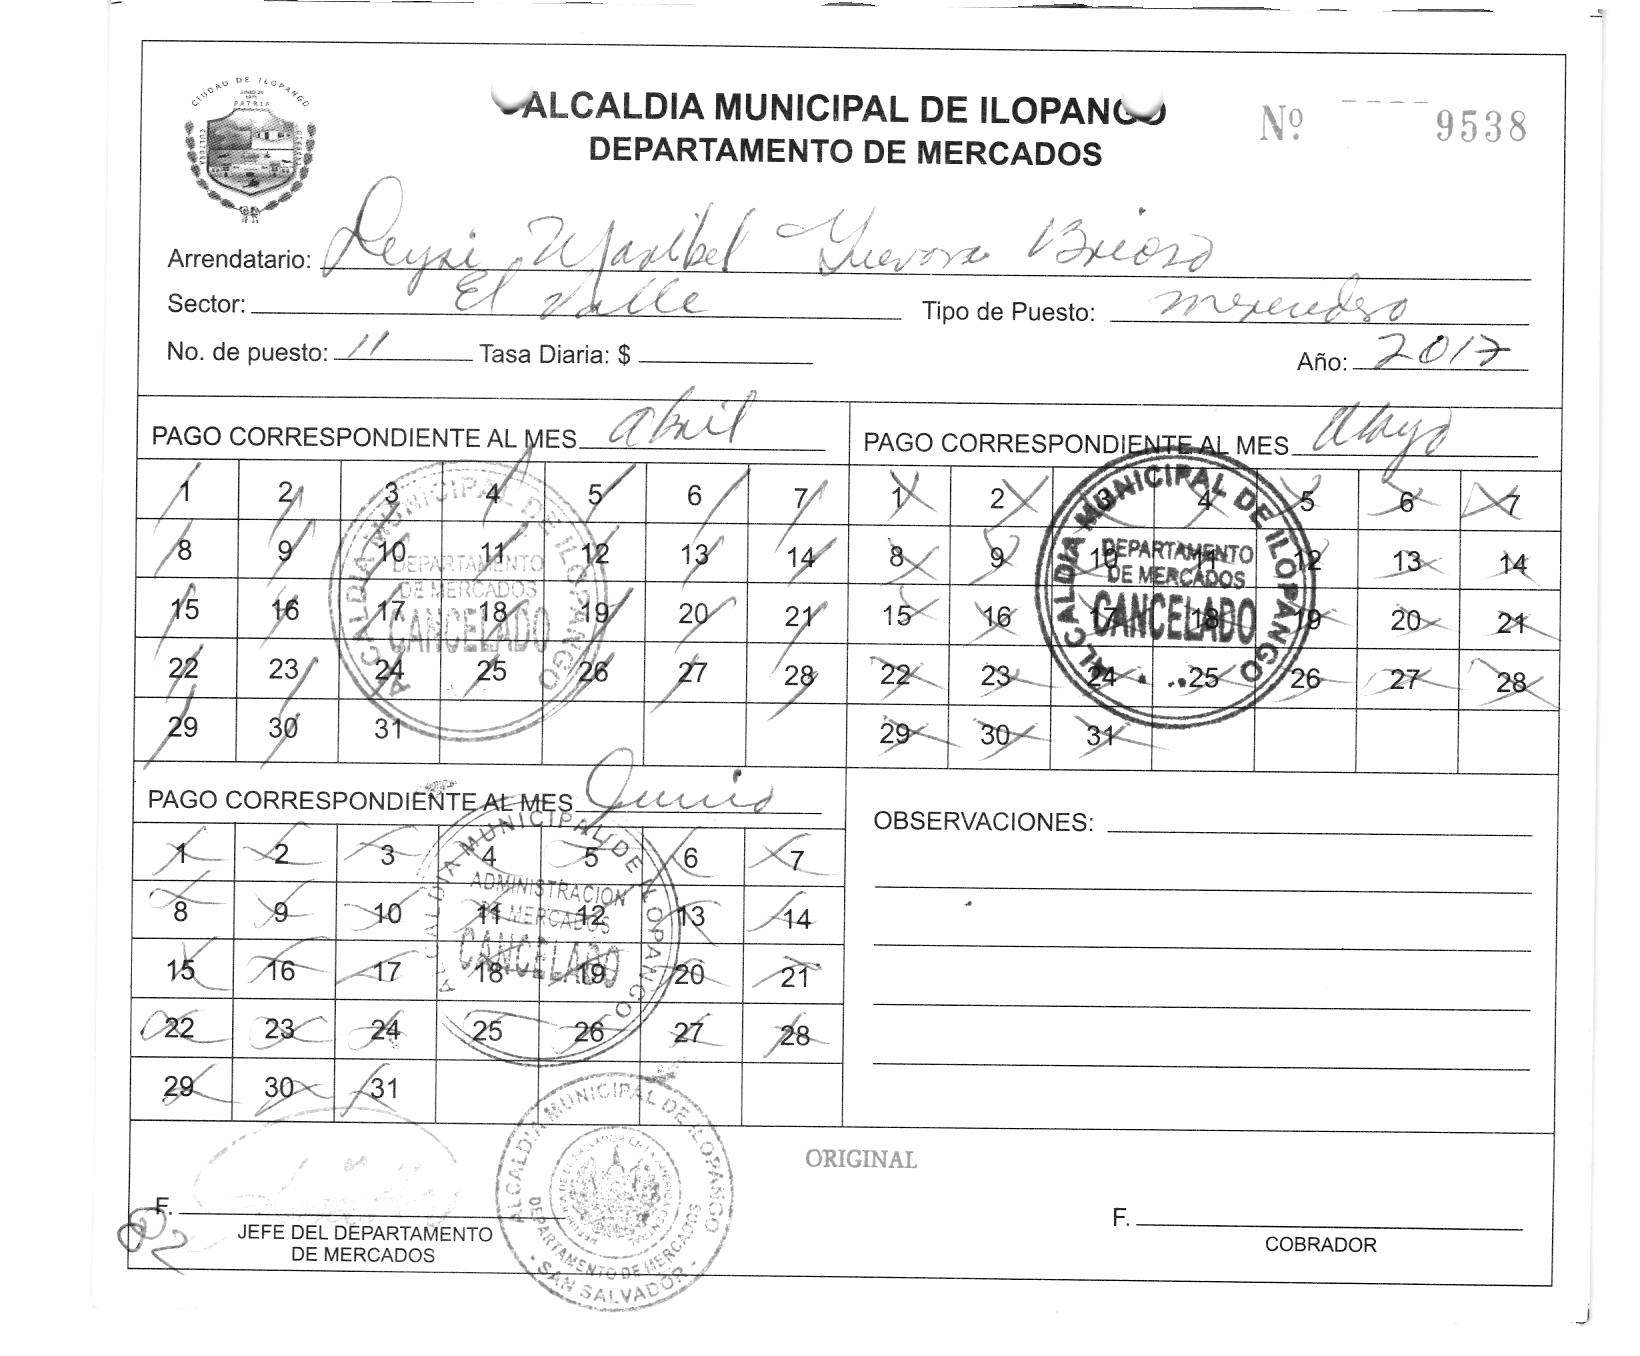 CIUDAD DE ILOPANGO
PATRIA
ALCALDIA MUNICIPAL DE ILOPANGO
DEPARTAMENTO DE MERCADOS
Nº. 9538
Arrendatario: Deysi Maribel Guevara Brioso
Sector: El Valle Tipo de Puesto:
No. de puesto: 11 Tasa Diaria: $ Año: 2017
PAGO CORRESPONDIENTE AL MES abril
1 2 3 4 5 6 7
8 9 10 11 12 13 14
15 16 17 18 19 20 21
22 23 24 25 26 27 28
29 30 31
ALCALDIA MUNICIPAL DE ILOPANGO
DEPARTAMENTO
DE MERCADOS
CANCELADO
PAGO CORRESPONDIENTE AL MES Mayo
1 2 3 4 5 6 7
8 9 10 11 12 13 14
15 16 17 18 19 20 21
22 23 24 25 26 27 28
29 30 31
ALCALDIA MUNICIPAL DE ILOPANGO
DEPARTAMENTO
DE MERCADOS
CANCELADO
PAGO CORRESPONDIENTE AL MES Junio
1 2 3 4 5 6 7
8 9 10 11 12 13 14
15 16 17 18 19 20 21
22 23 24 25 26 27 28
29 30 31
ALCALDIA MUNICIPAL DE ILOPANGO
ADMINISTRACION
DE MERCADOS
CANCELADO
OBSERVACIONES:
ORIGINAL
F.
JEFE DEL DEPARTAMENTO
DE MERCADOS
ALCALDIA MUNICIPAL DE ILOPANGO
DEPARTAMENTO DE MERCADOS
SAN SALVADOR
F.
COBRADOR